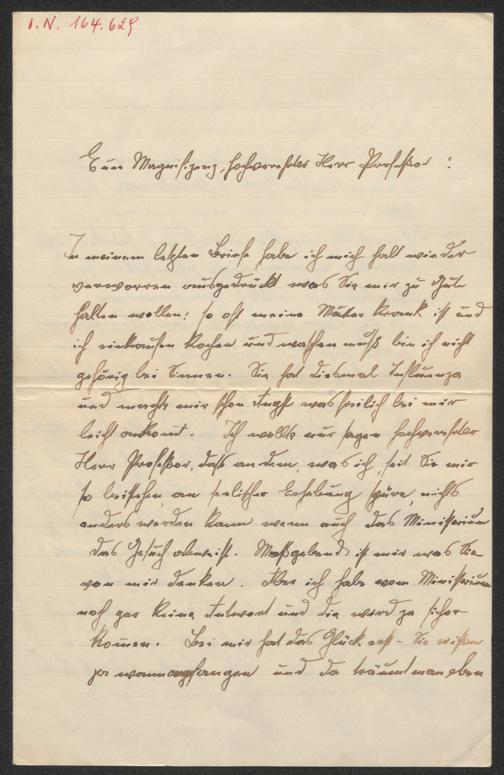 I.N. 164.629
Eure Magnifizenz, hochverehrter Herr Professor!
In meinem letzten Briefe habe ich mich halt wieder
verworren ausgedrückt was Sie mir zu Gute
halten wollen: so oft meine Mutter krank ist und
ich einkaufen kochen und waschen muß bin ich nicht
gehörig bei Sinnen. Sie hat diesmal Influenza
und machte mir schon Angst was freilich bei mir
leicht ankommt. Ich wollte nur sagen hochverehrter
Herr Professor, daß an dem, was ich, seit Sie mir
so beistehen, an seelischer Erhebung spüre, nichts
anders werden kann wenn auch das Ministerium
das Gesuch abweist. Maßgebend ist mir was Sie
von mir denken. Aber ich habe vom Ministerium
noch gar keine Antwort und die wird ja sicher
kommen. Bei mir hat das Glück erst - Sie wissen
ja wann angefangen und da träumt man eben